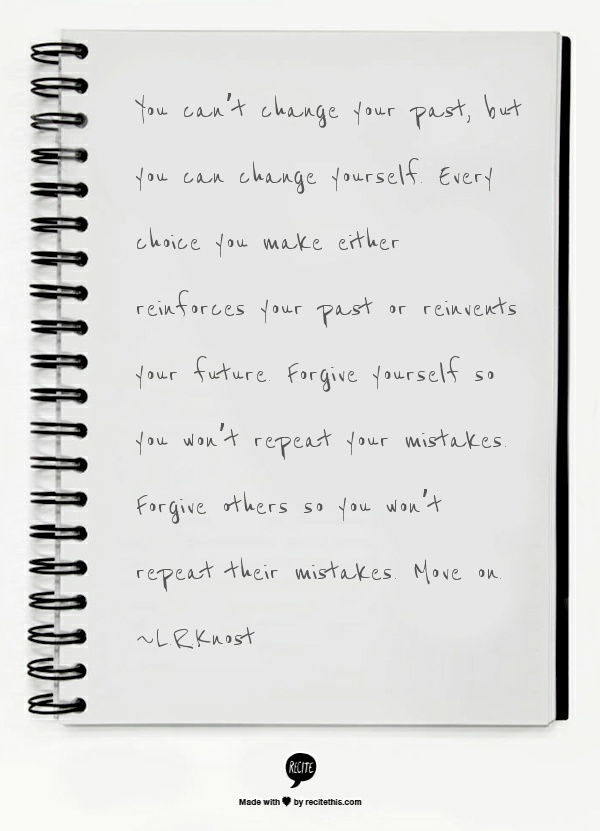 You can't change your past, but
you can change yourself. Every
choice you make either
reinforces your past or reinvents
your future. Forgive yourself so
you won't repeat your mistakes.
Forgive others so you won't
repeat their mistakes. Move on.
~L.R.Knost
RECITE
Made with ♥ by recitethis.com